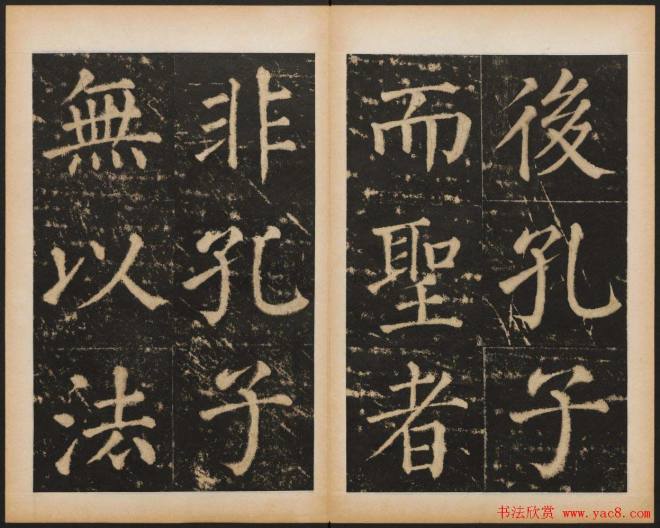 後孔子
而聖者
非孔子
無以法
书法欣赏 www.yac8.com